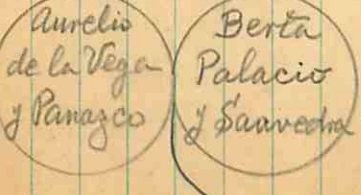 Aurelio
de la Vega
y Panazco
Berta
Palacio
y Saavedra